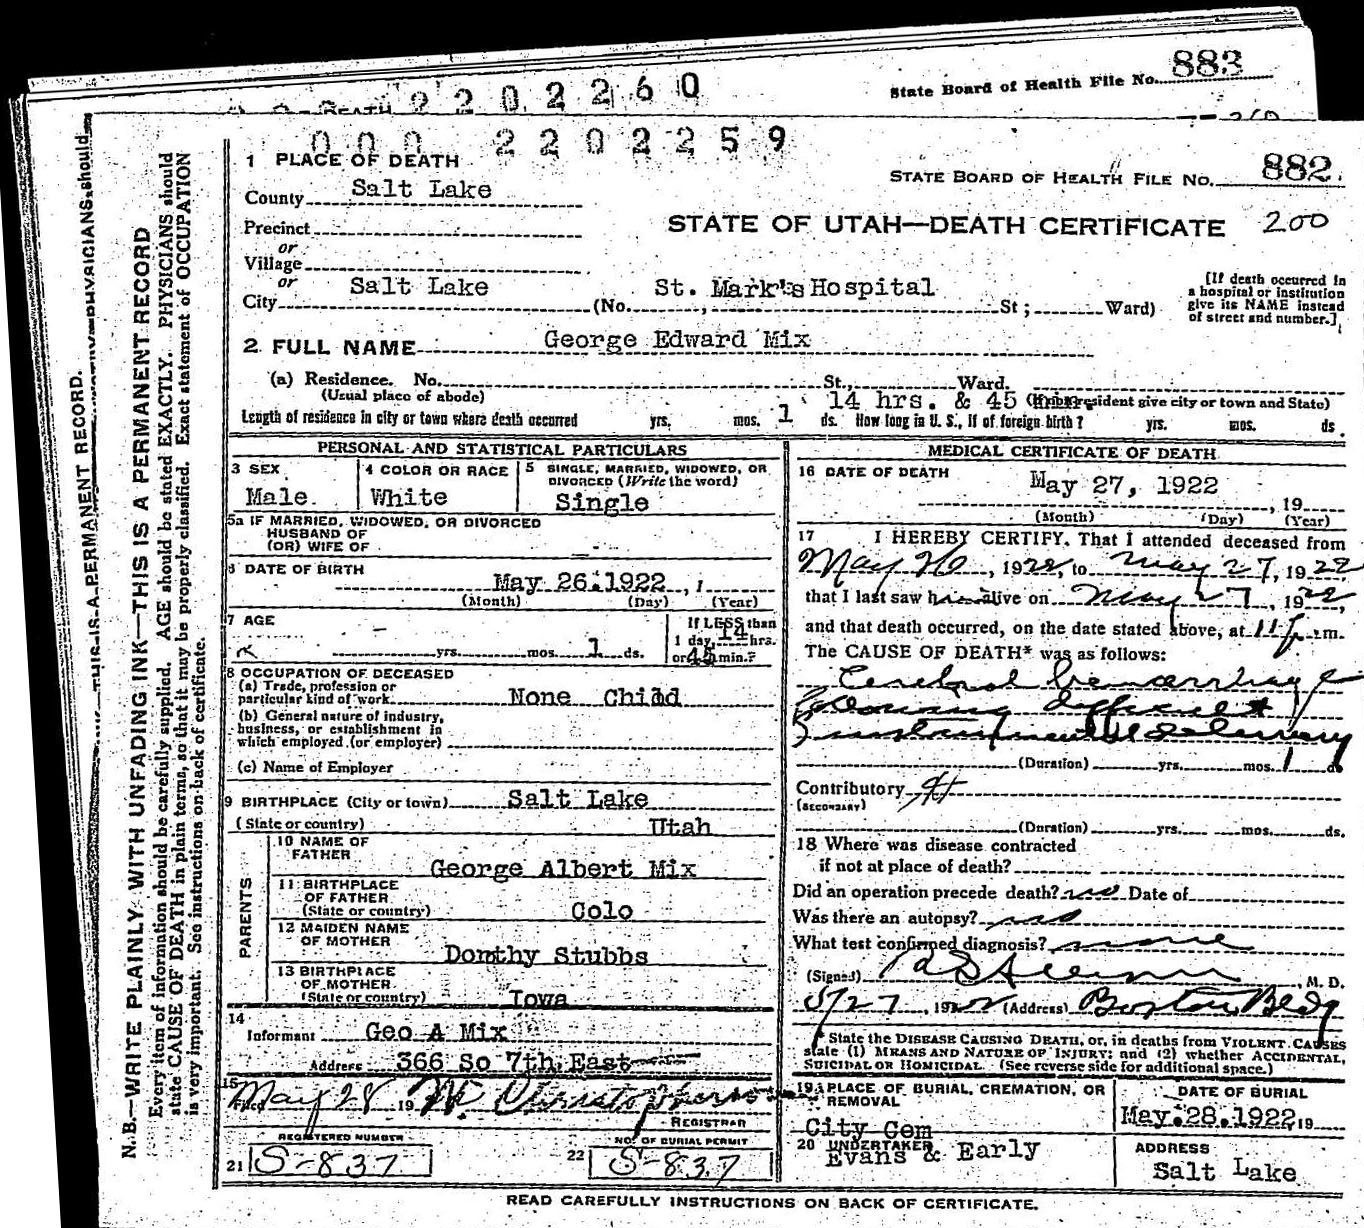 State Board of Health File No. 883
DEATH 2 2 0 2 2 6 0
0 0 0 2 2 0 2 2 5 9
1 PLACE OF DEATH
STATE BOARD OF HEALTH FILE No. 882
County Salt Lake
STATE OF UTAH—DEATH CERTIFICATE 200
Precinct
or
Village
or
City Salt Lake (No. St. Mark's Hospital St; Ward)
[If death occurred in
a hospital or institution
give its NAME instead
of street and number.]
2 FULL NAME George Edward Mix
(a) Residence. No. St., Ward.
(Usual place of abode)
14 hrs. & 45
resident give city or town and State)
Length of residence in city or town where death occurred yrs. mos. 1 ds. How long in U. S., if of foreign birth? yrs. mos. ds.
PERSONAL AND STATISTICAL PARTICULARS
3 SEX
Male
4 COLOR OR RACE
White
5 SINGLE, MARRIED, WIDOWED, OR
DIVORCED (Write the word)
Single
5a IF MARRIED, WIDOWED, OR DIVORCED
HUSBAND OF
(OR) WIFE OF
6 DATE OF BIRTH
May 26.1922
(Month) (Day) (Year)
7 AGE
yrs. mos. 1 ds.
If LESS than
1 day, 14 hrs.
or 45 min.?
8 OCCUPATION OF DECEASED
(a) Trade, profession or
particular kind of work None Child
(b) General nature of industry,
business, or establishment in
which employed (or employer)
(c) Name of Employer
9 BIRTHPLACE (City or town) Salt Lake
(State or country) Utah
PARENTS
10 NAME OF
FATHER
George Albert Mix
11 BIRTHPLACE
OF FATHER
(State or country) Colo
12 MAIDEN NAME
OF MOTHER
Dorthy Stubbs
13 BIRTHPLACE
OF MOTHER
(State or country) Iowa
14
Informant Geo A Mix
Address 366 So 7th East
15
Filed May 28 19 M. Christopherson
REGISTRAR
REGISTERED NUMBER
21 S-837
NO. OF BURIAL PERMIT
22 S-837
MEDICAL CERTIFICATE OF DEATH
16 DATE OF DEATH
May 27, 1922
, 19
(Month) (Day) (Year)
17 I HEREBY CERTIFY, That I attended deceased from
May 26, 1922, to May 27, 1922
that I last saw him alive on May 27, 1922,
and that death occurred, on the date stated above, at 11 P. m.
The CAUSE OF DEATH* was as follows:
Cerebral hemorrhage
following difficult
instrumental delivery
(Duration) yrs. mos. 1 ds.
Contributory
(SECONDARY)
(Duration) yrs. mos. ds.
18 Where was disease contracted
if not at place of death?
Did an operation precede death? no Date of
Was there an autopsy? no
What test confirmed diagnosis? none
(Signed) , M. D.
5/27, 1922 (Address) Boston Bldg
* State the DISEASE CAUSING DEATH, or, in deaths from VIOLENT CAUSES
state (1) MEANS AND NATURE OF INJURY; and (2) whether ACCIDENTAL,
SUICIDAL OR HOMICIDAL. (See reverse side for additional space.)
19 PLACE OF BURIAL, CREMATION, OR
REMOVAL
City Cem
DATE OF BURIAL
May.28.1922, 19
20 UNDERTAKER
Evans & Early
ADDRESS
Salt Lake
READ CAREFULLY INSTRUCTIONS ON BACK OF CERTIFICATE.
N. B.—WRITE PLAINLY, WITH UNFADING INK—THIS IS A PERMANENT RECORD
Every item of information should be carefully supplied. AGE should be stated EXACTLY. PHYSICIANS should
state CAUSE OF DEATH in plain terms, so that it may be properly classified. Exact statement of OCCUPATION
is very important. See instructions on back of certificate.
THIS IS A PERMANENT RECORD.
PHYSICIANS should